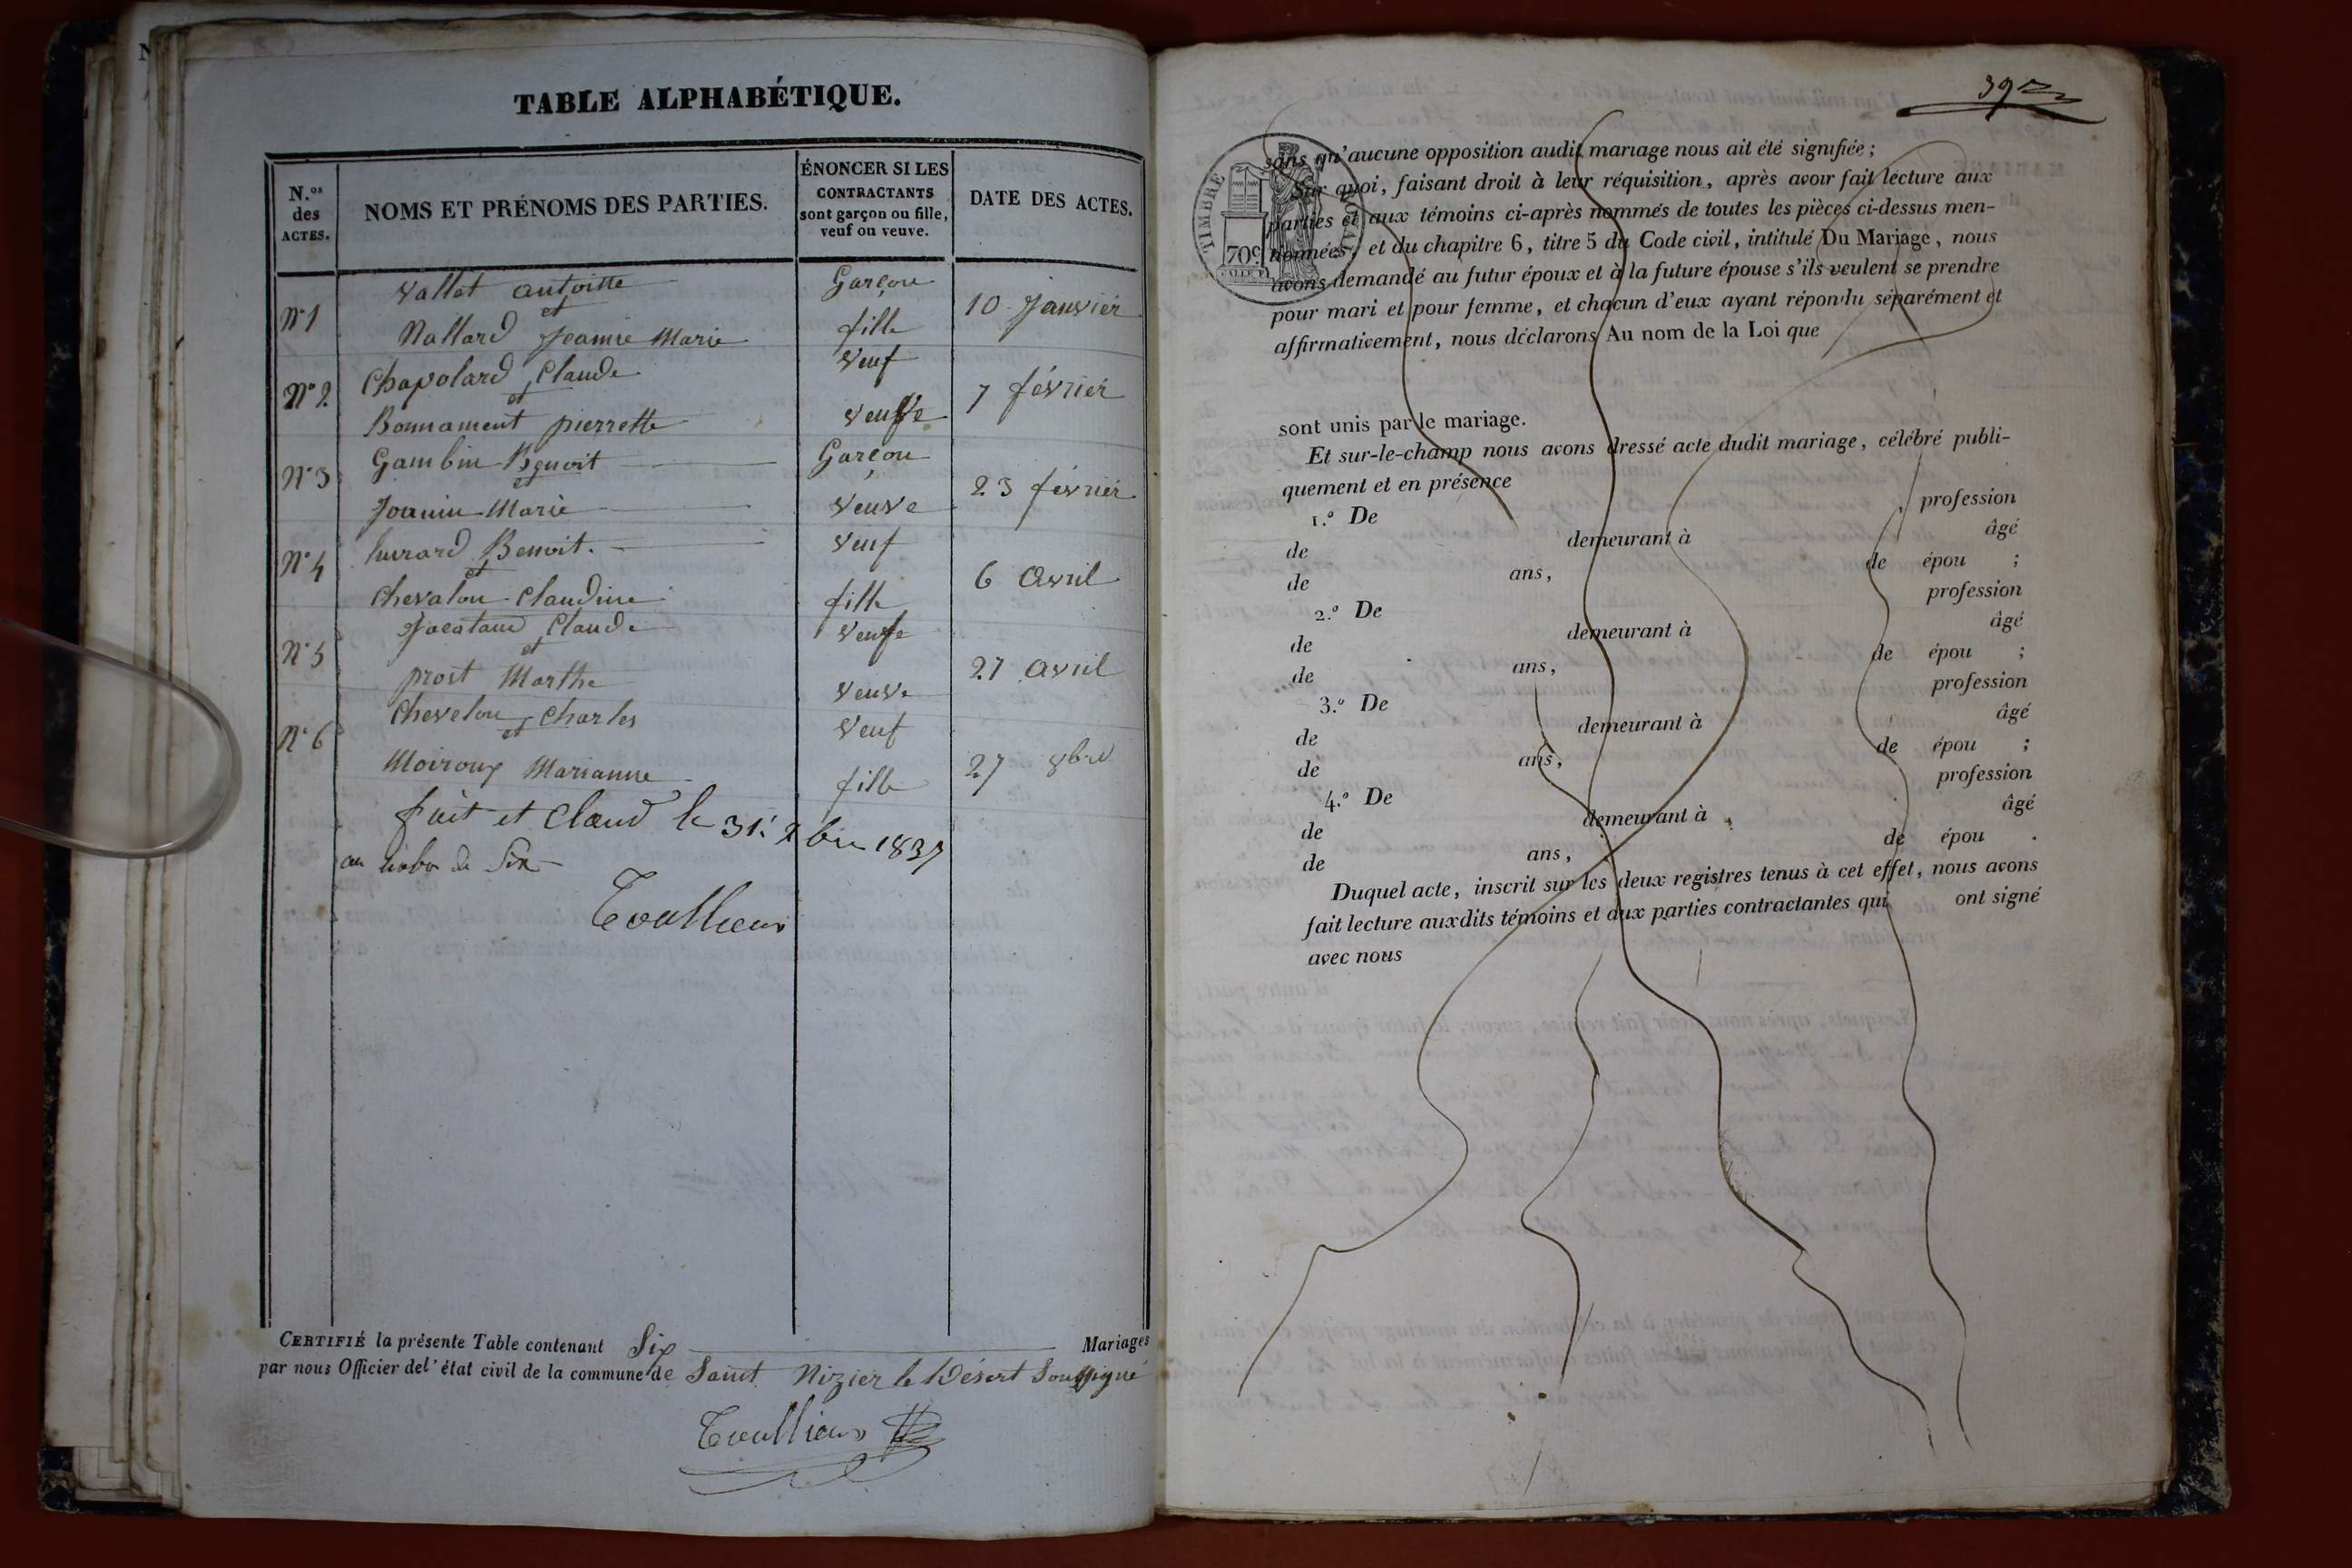 TABLE ALPHABÉTIQUE.
N.os des ACTES.
NOMS ET PRÉNOMS DES PARTIES.
ÉNONCER SI LES
CONTRACTANTS
sont garçon ou fille,
veuf ou veuve.
DATE DES ACTES.
Vallet antoitte Garçon
N°1 et 10 Janvier
Nallard Jeanne Marie fille
Chapolard Claude Veuf
N°2 et 7 février
Bonnament pierrette Veufve
Gambin Benoit Garçon
N°3 et 23 février
Joanin Marie Veuve
Luvrard Benoit. Veuf
N°4 et 6 Avril
Chevalon Claudine fille
Jacataud Claude Veufe
N°5 et 27 avril
prost Marthe Veuve
Chevelon Charles Veuf
N°6 et 27 8bre
Moiroux Marianne fille
fait et Claud le 31 Xbre 1837
au de Six
Toullieux
CERTIFIÉ la présente Table contenant Six Mariages
par nous Officier del'état civil de la commune de Saint Nizier le Désert Soussigné
Toullieux
TIMBRE ROYAL
70c
39
sans qu'aucune opposition audit mariage nous ait été signifiée;
Sur quoi, faisant droit à leur réquisition, après avoir fait lecture aux
parties et aux témoins ci-après nommés de toutes les pièces ci-dessus men-
tionnées, et du chapitre 6, titre 5 du Code civil, intitulé Du Mariage, nous
avons demandé au futur époux et à la future épouse s'ils veulent se prendre
pour mari et pour femme, et chacun d'eux ayant répondu séparément et
affirmativement, nous déclarons Au nom de la Loi que
sont unis par le mariage.
Et sur-le-champ nous avons dressé acte dudit mariage, célébré publi-
quement et en présence
1.° De , profession
de demeurant à âgé
de ans, de épou ;
2.° De profession
de demeurant à âgé
de ans, de épou ;
3.° De profession
de demeurant à âgé
de ans, de épou ;
4.° De profession
de demeurant à âgé
de ans, de épou .
Duquel acte, inscrit sur les deux registres tenus à cet effet, nous avons
fait lecture auxdits témoins et aux parties contractantes qui ont signé
avec nous